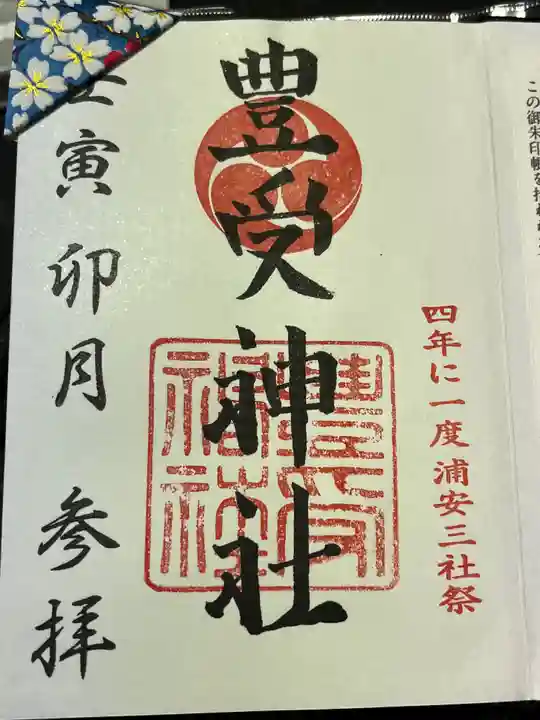 この御朱印帳を
四年に一度浦安三社祭
豊受神社
豊受神社
壬寅 卯月 参拝